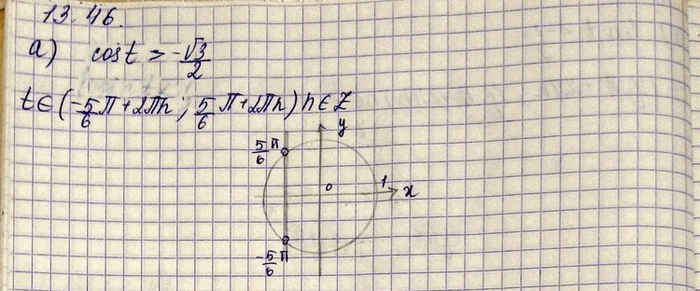 13.46.
а) cos t > -√3/2
t ∈ (-5/6 π + 2πn ; 5/6 π + 2πn) n ∈ Z
y
5/6 π
0
1
x
-5/6 π